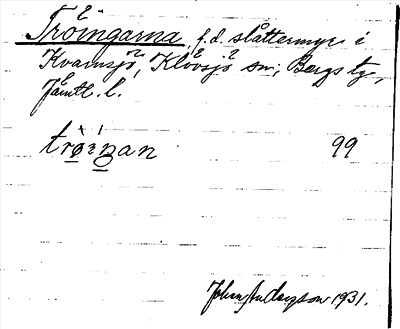 Tröingarna, f.d. slåttermyr i
Kvarnsjö, Klövsjö sn, Bergs tg,
Jämtl. l.
trøᵻŋan 99
Johan Andersson 1931.